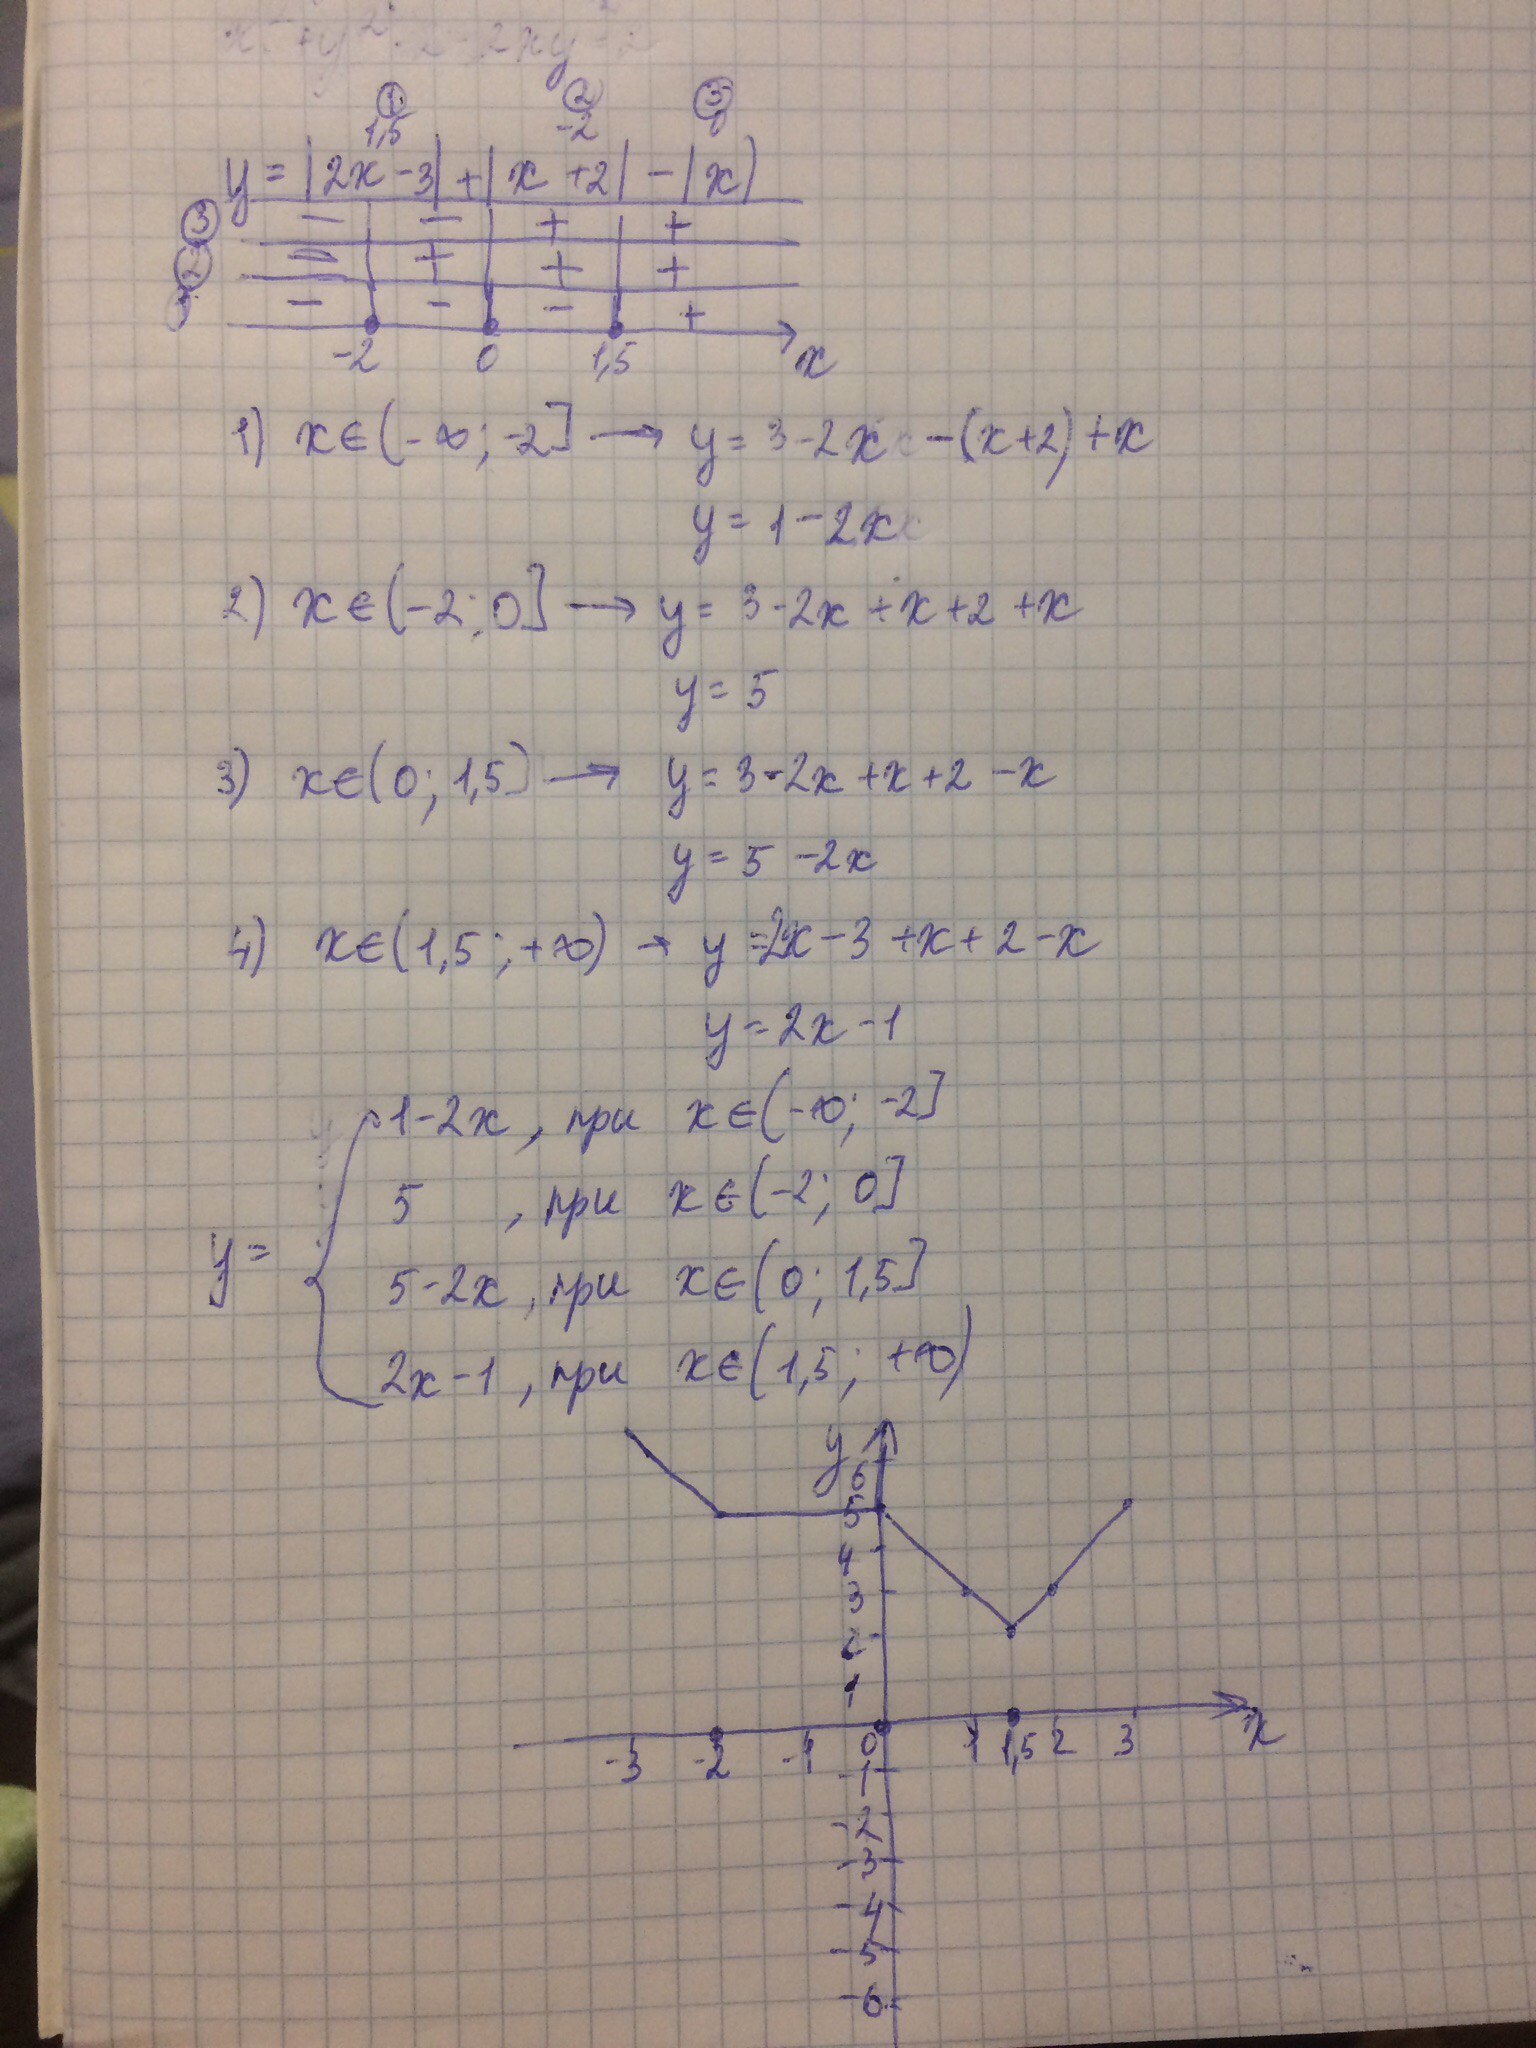 x² + y²
① ② ③
1,5 -2 0
y = |2x - 3| + |x + 2| - |x|
③ - - + +
② - + + +
- - - +
-2 0 1,5 x
1) x∈(-∞; -2] → y = 3 - 2x - (x+2) + x
y = 1 - 2x
2) x∈(-2; 0] → y = 3 - 2x + x + 2 + x
y = 5
3) x∈(0; 1,5] → y = 3 - 2x + x + 2 - x
y = 5 - 2x
4) x∈(1,5; +∞) → y = 2x - 3 + x + 2 - x
y = 2x - 1
1 - 2x, при x∈(-∞; -2]
5, при x∈(-2; 0]
y =
5 - 2x, при x∈(0; 1,5]
2x - 1, при x∈(1,5; +∞)
y
6
5
4
3
2
1
-3 -2 -1 0 1 1,5 2 3 x
-1
-2
-3
-4
-5
-6